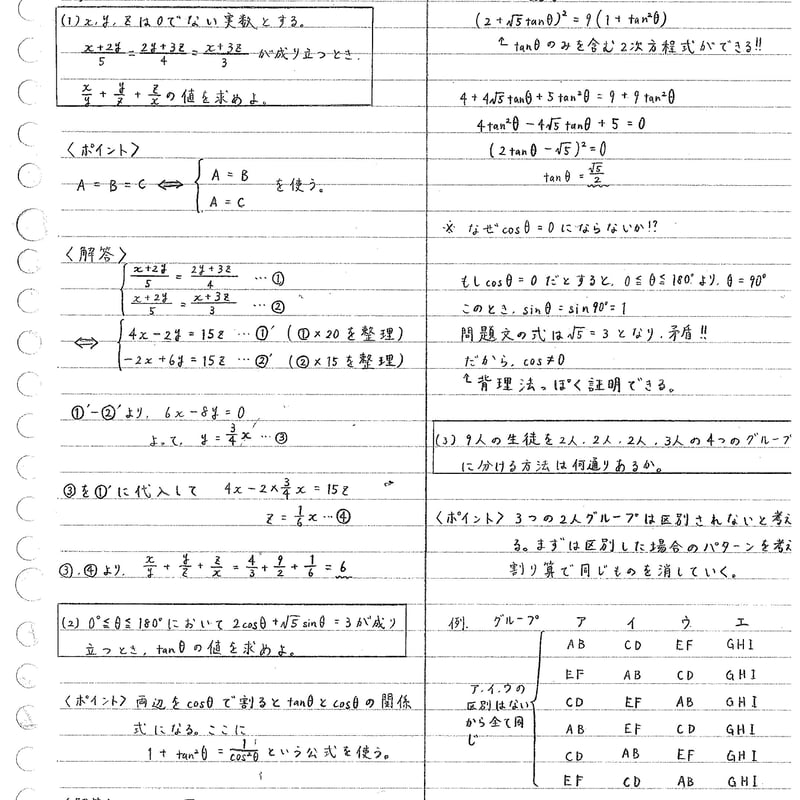 (1) x, y, z は0でない実数とする。
(x+2y)/5 = (2y+3z)/4 = (x+3z)/3 が成り立つとき、
x/y + y/z + z/x の値を求めよ。
〈ポイント〉
A = B = C ⟺ { A = B
A = C を使う。
〈解答〉
{ (x+2y)/5 = (2y+3z)/4 … ①
(x+2y)/5 = (x+3z)/3 … ②
⟺ { 4x − 2y = 15z … ①′ (①×20 を整理)
−2x + 6y = 15z … ②′ (②×15 を整理)
①′−②′より, 6x − 8y = 0
よって, y = 3/4 x … ③
③を①′に代入して 4x − 2×3/4 x = 15z
z = 1/6 x … ④
③, ④より, x/y + y/z + z/x = 4/3 + 9/2 + 1/6 = 6
(2) 0°≦θ≦180°において 2cosθ+√5 sinθ = 3 が成り
立つとき, tanθ の値を求めよ。
〈ポイント〉両辺をcosθで割るとtanθとcosθの関係
式になる。ここに
1 + tan²θ = 1/cos²θ という公式を使う。
(2+√5 tanθ)² = 9(1+tan²θ)
↑ tanθのみを含む2次方程式ができる!!
4 + 4√5 tanθ + 5tan²θ = 9 + 9tan²θ
4tan²θ − 4√5 tanθ + 5 = 0
(2tanθ − √5)² = 0
tanθ = √5/2
※ なぜcosθ = 0にならないか!?
もしcosθ = 0だとすると, 0≦θ≦180°より, θ = 90°
このとき, sinθ = sin90° = 1
問題文の式は√5 = 3となり, 矛盾!!
だから, cos≠0
↑ 背理法っぽく証明できる。
(3) 9人の生徒を2人, 2人, 2人, 3人の4つのグループ
に分ける方法は何通りあるか。
〈ポイント〉3つの2人グループは区別されないと考え
る。まずは区別した場合のパターンを考え
割り算で同じものを消していく。
例. グループ ア イ ウ エ
AB CD EF GHI
EF AB CD GHI
ア, イ, ウの区別はないから全て同じ
CD EF AB GHI
AB EF CD GHI
CD AB EF GHI
EF CD AB GHI